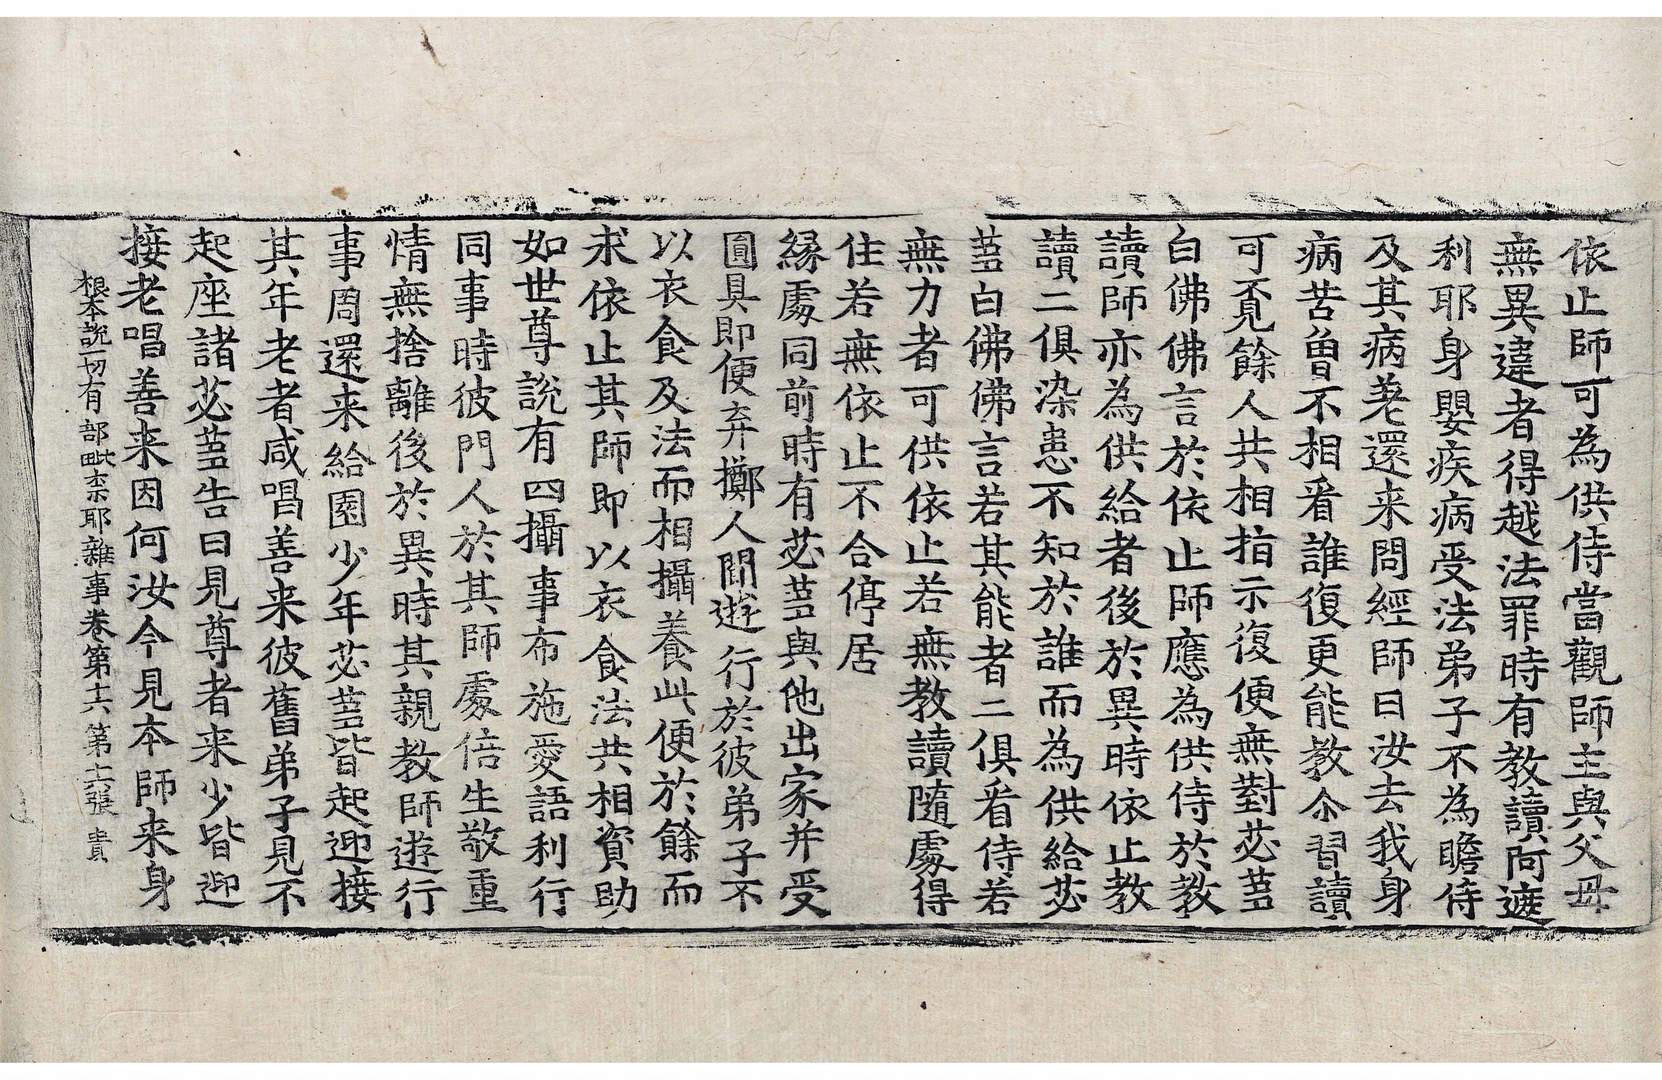 依止師可為供侍當觀師主與父母
無異違者得越法罪時有教讀阿遮
利耶身嬰疾病受法弟子不為瞻侍
及其病差還来問經師曰汝去我身
病苦曽不相看誰復更能教尒習讀
可覓餘人共相指示復便無對苾蒭
白佛佛言於依止師應為供侍於教
讀師亦為供給者後於異時依止教
讀二俱染患不知於誰而為供給苾
蒭白佛佛言若其能者二俱看侍若
無力者可供依止若無教讀隨處得
住若無依止不合停居
緣處同前時有苾蒭與他出家并受
圓具即便弃擲人間遊行於彼弟子不
以衣食及法而相攝養此便於餘而
求依止其師即以衣食法共相資助
如世尊說有四攝事布施愛語利行
同事時彼門人於其師處倍生敬重
情無捨離後於異時其親教師遊行
事周還来給園少年苾蒭皆起迎接
其年老者咸唱善来彼舊弟子見不
起座諸苾蒭告曰見尊者来少皆迎
接老唱善来因何汝今見本師来身
根本說一切有部毗柰耶雜事卷第十六 第十六張 貴